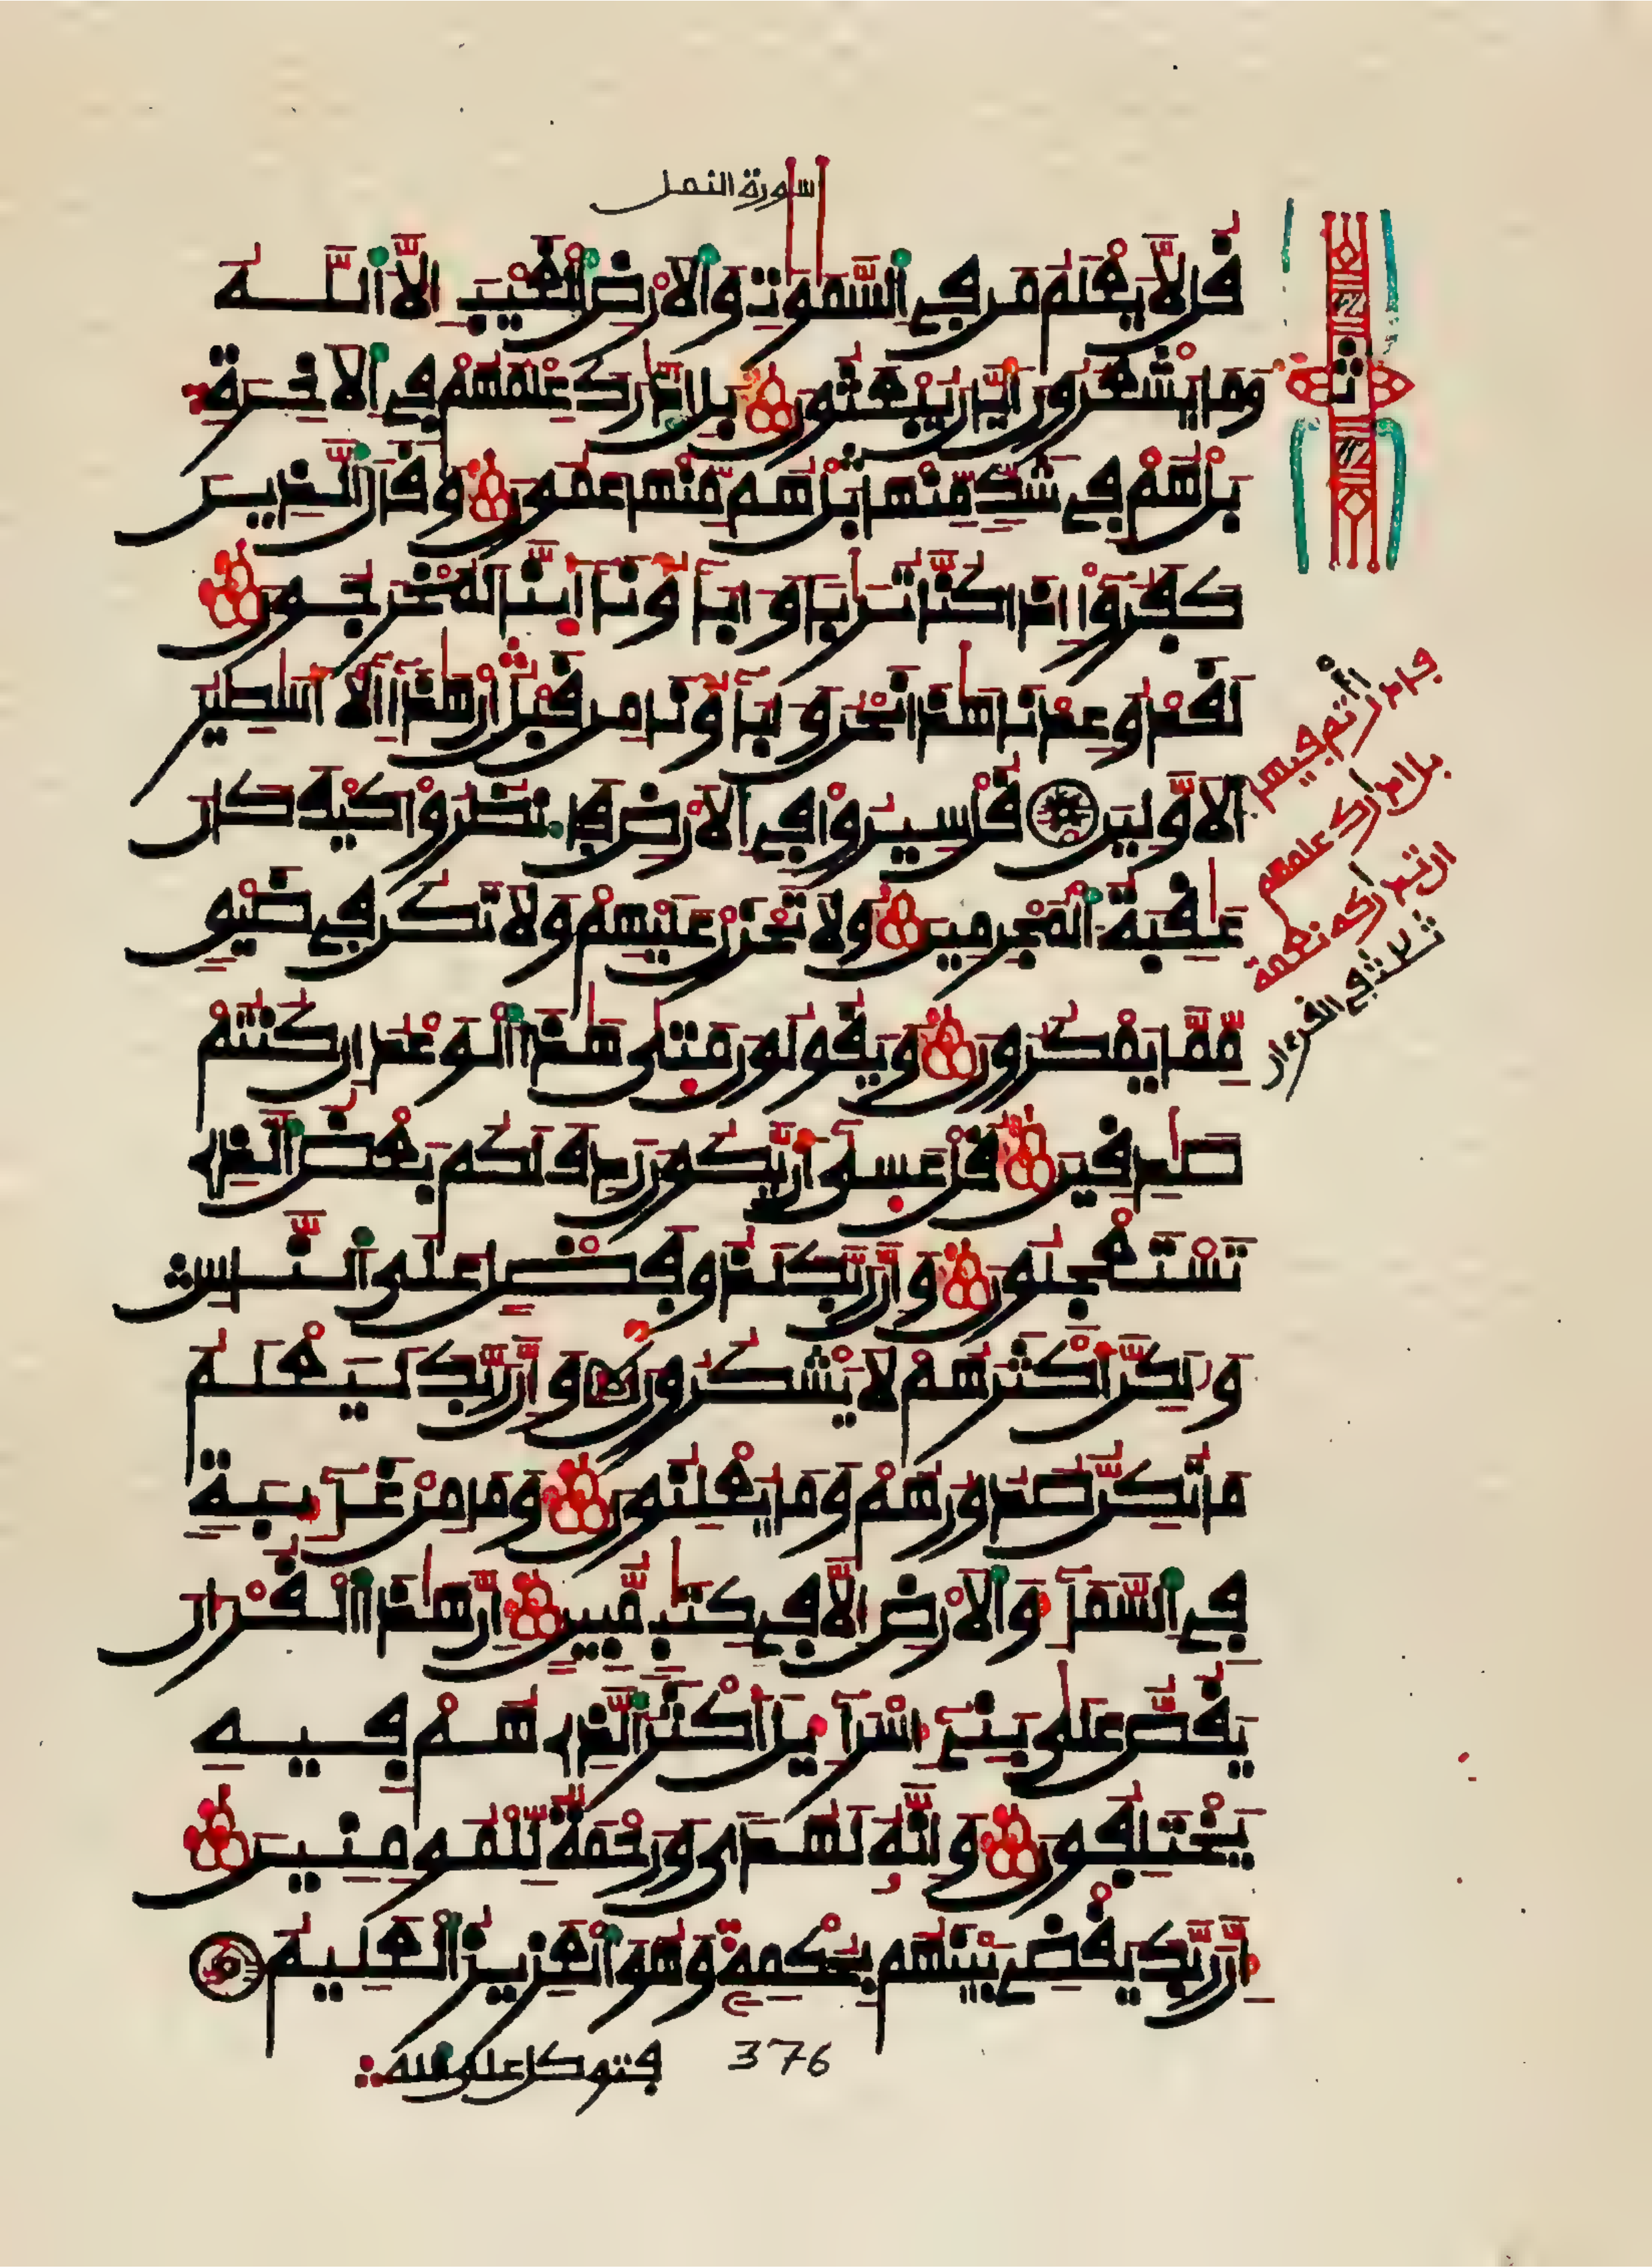 سورة النمل
قل لا يعلم من في السموت والارض الغيب الا الله
وما يشعرون ايان يبعثون بل ادرك علمهم في الاخرة
بل هم في شك منها بل هم منها عمون وقال الذين
كفروا اذا كنا تربا وءاباونا اينا لمخرجون
لقد وعدنا هذا نحن وءاباونا من قبل ان هذا الا اسطير
الاولين قل سيروا في الارض فانظروا كيف كان
عقبة المجرمين ولا تحزن عليهم ولا تكن في ضيق
مما يمكرون ويقولون متى هذا الوعد ان كنتم
صدقين قل عسى ان يكون ردف لكم بعض الذي
تستعجلون وان ربك لذو فضل على الناس
ولكن اكثرهم لا يشكرون وان ربك ليعلم
ما تكن صدورهم وما يعلنون وما من غايبة
في السماء والارض الا في كتب مبين ان هذا القران
يقص على بني اسراءيل اكثر الذي هم فيه
يختلفون وانه لهدى ورحمة للمومنين
ان ربك يقضي بينهم بحكمه وهو العزيز العليم
فتوكل على الله
376
ث
بل ادرك علمهم
ثلاث في القرءان